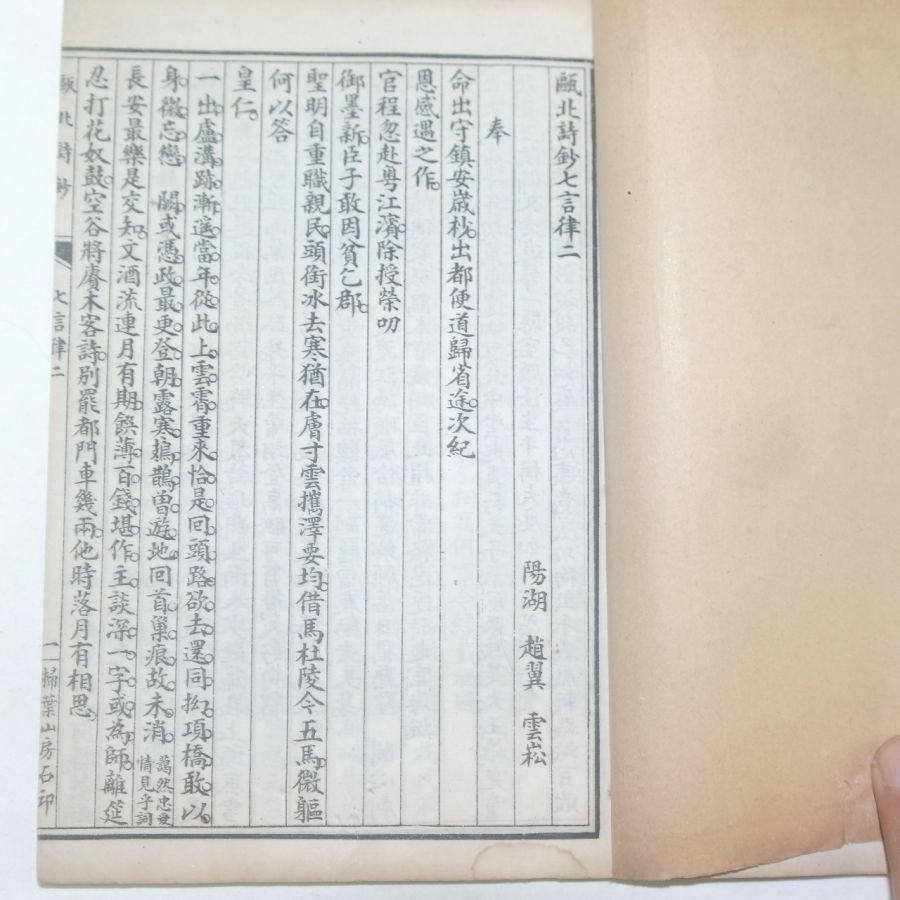 甌北詩鈔七言律二
陽湖 趙翼 雲崧
奉
命出守鎮安歲杪出都便道歸省途次紀
恩感遇之作
官程忽赴粤江濱除授榮叨
御墨新臣子敢因貧乞郡
聖明自重職親民頭銜冰去寒猶在膚寸雲攜澤要均借馬杜陵今五馬微軀
何以答
皇仁
一出盧溝跡漸遙當年從此上雲霄重來恰是回頭路欲去還同拗項橋敢以
身微忘戀 闕或憑政最更登朝露寒鳷鵲曾遊地回首巢痕故未消 藹然忠愛情見乎詞
長安最樂是交知文酒流連月有期饌薄百錢堪作主談深一字或為師離筵
忍打花奴鼓空谷將賡木客詩別罷都門車幾兩他時落月有相思
甌北詩鈔 七言律二 一 掃葉山房石印